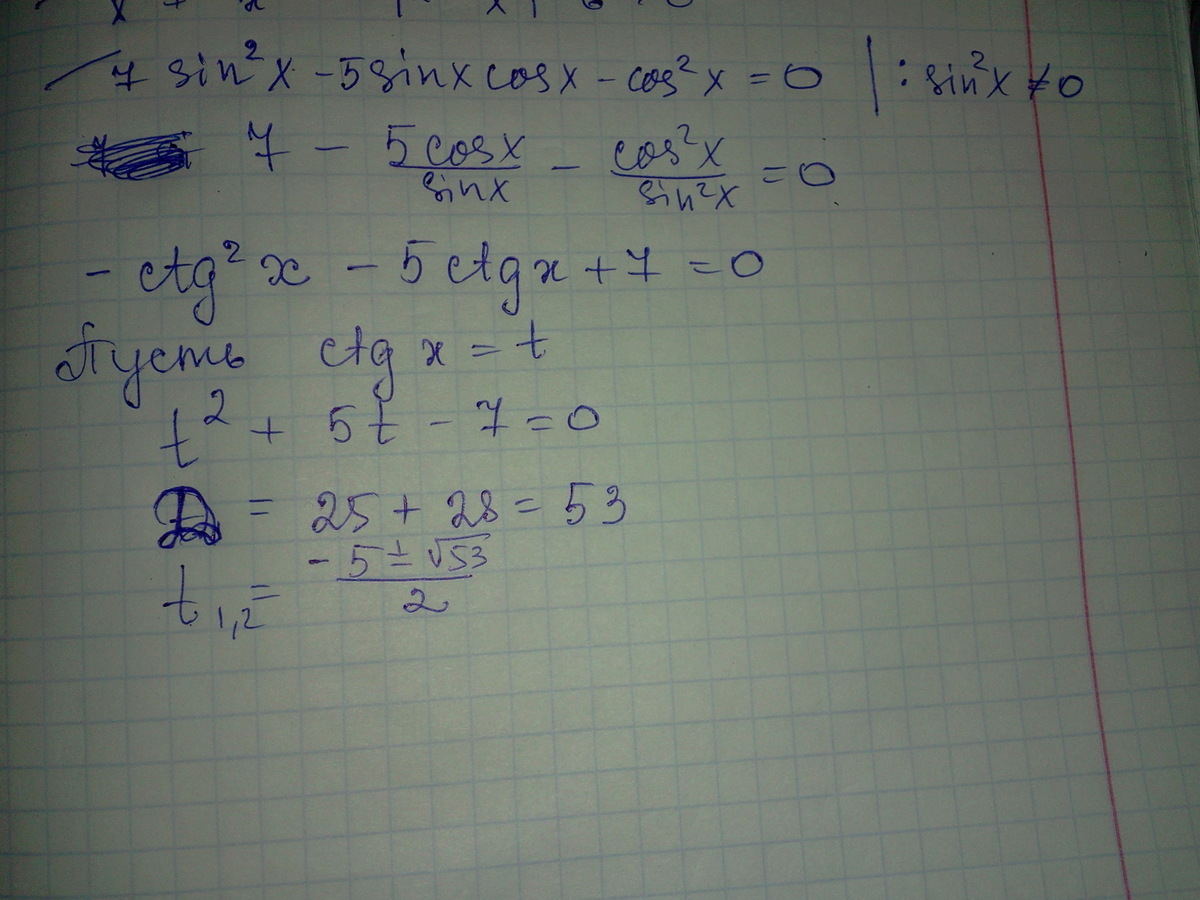 7 sin²x - 5 sinx cosx - cos²x = 0 | : sin²x ≠ 0
7 - 5cosx/sinx - cos²x/sin²x = 0
- ctg²x - 5ctgx + 7 = 0
Пусть ctg x = t
t² + 5t - 7 = 0
D = 25 + 28 = 53
t 1,2 = -5 ± √53 / 2